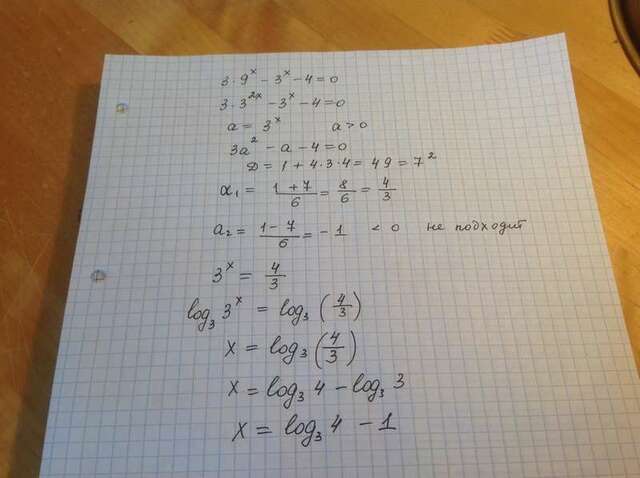 3·9^x − 3^x − 4 = 0
3·3^2x − 3^x − 4 = 0
a = 3^x a > 0
3a^2 − a − 4 = 0
D = 1 + 4·3·4 = 49 = 7^2
a₁ = (1+7)/6 = 8/6 = 4/3
a₂ = (1−7)/6 = −1 < 0 не подходит
3^x = 4/3
log₃ 3^x = log₃ (4/3)
x = log₃ (4/3)
x = log₃ 4 − log₃ 3
x = log₃ 4 − 1